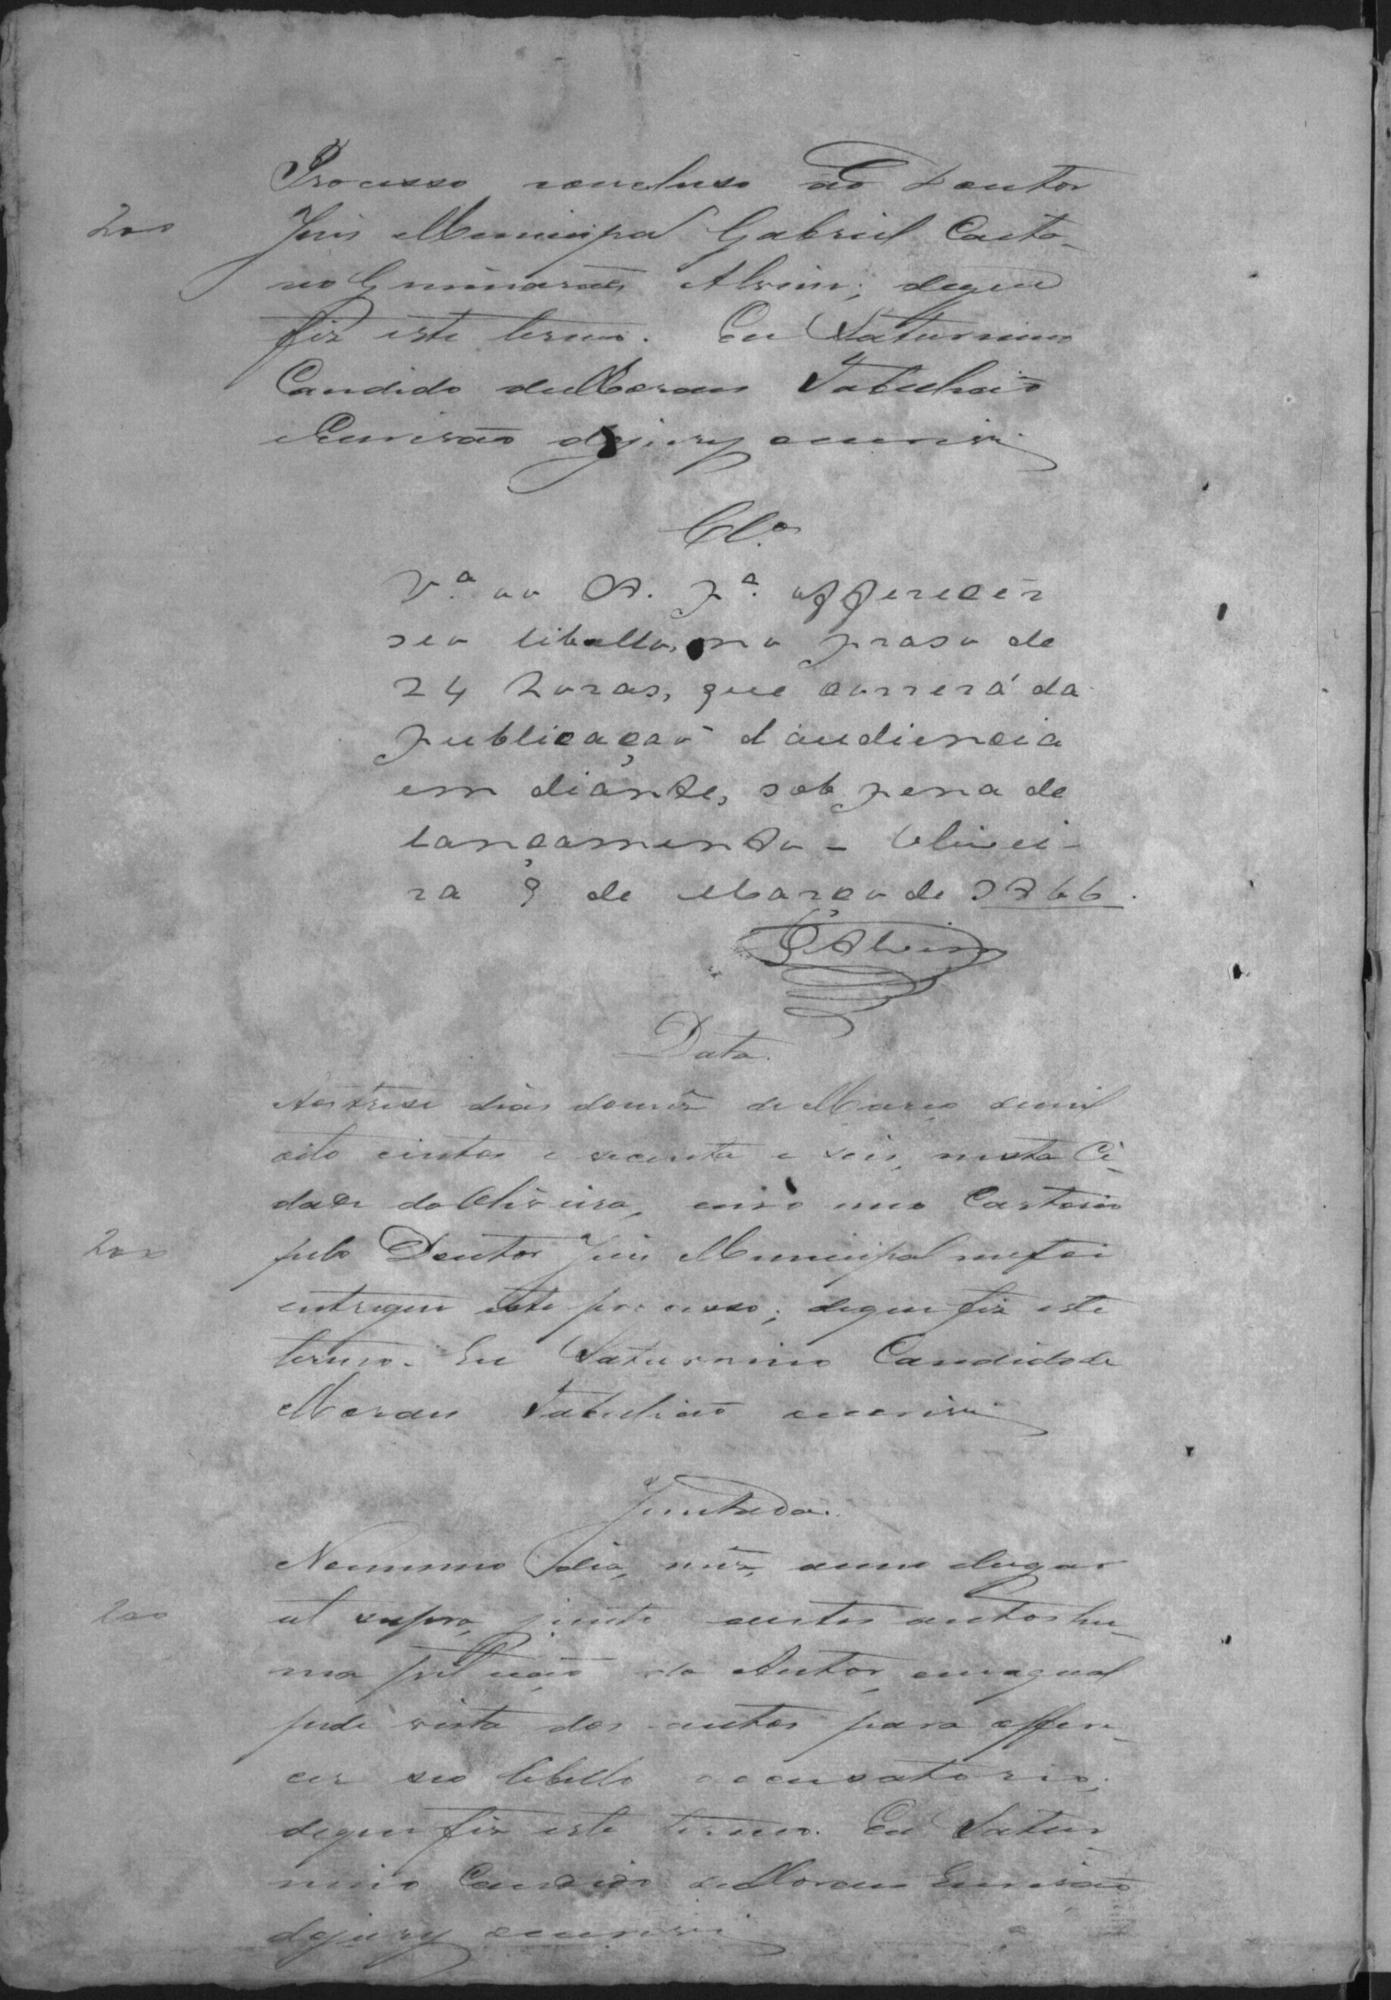 Processo concluso ao Doutor
200
Juis Municipal Gabriel Caeta-
no Guimarães Alvim; dequê
fiz este termo. Eu Saturnino
Candido de Moraes Tabelião
Escrivão do jury escrivi
Cl.os
V.ª ao A. p.ª offerecer
seo libello, no praso de
24 horas, que correrá da
publicação d'audiencia
em diante, sob pena de
lançamento – Olivei-
ra 9 de Março de 1866.
GAlvim
Data.
Aos treze dias domês de Março demil
oito centos e secenta e seis, nesta Ci-
dade da Oliveira, em o meo Cartorio
200
pelo Doutor Juis Municipal mefoi
entregue este processo; dequê fiz este
termo. Eu Saturnino Candido de
Moraes Tabelião escrivi
Juntada.
Nomesmo dia, mês, anno elugar
200
ut supra, junto aestes autos hu-
ma petição do Autor, emaqual
pede vista dos autos para offere-
cer seo libello accusatorio;
dequê fiz este termo. Eu Satur-
nino Candido de Moraes Escrivão
do jury escrivi